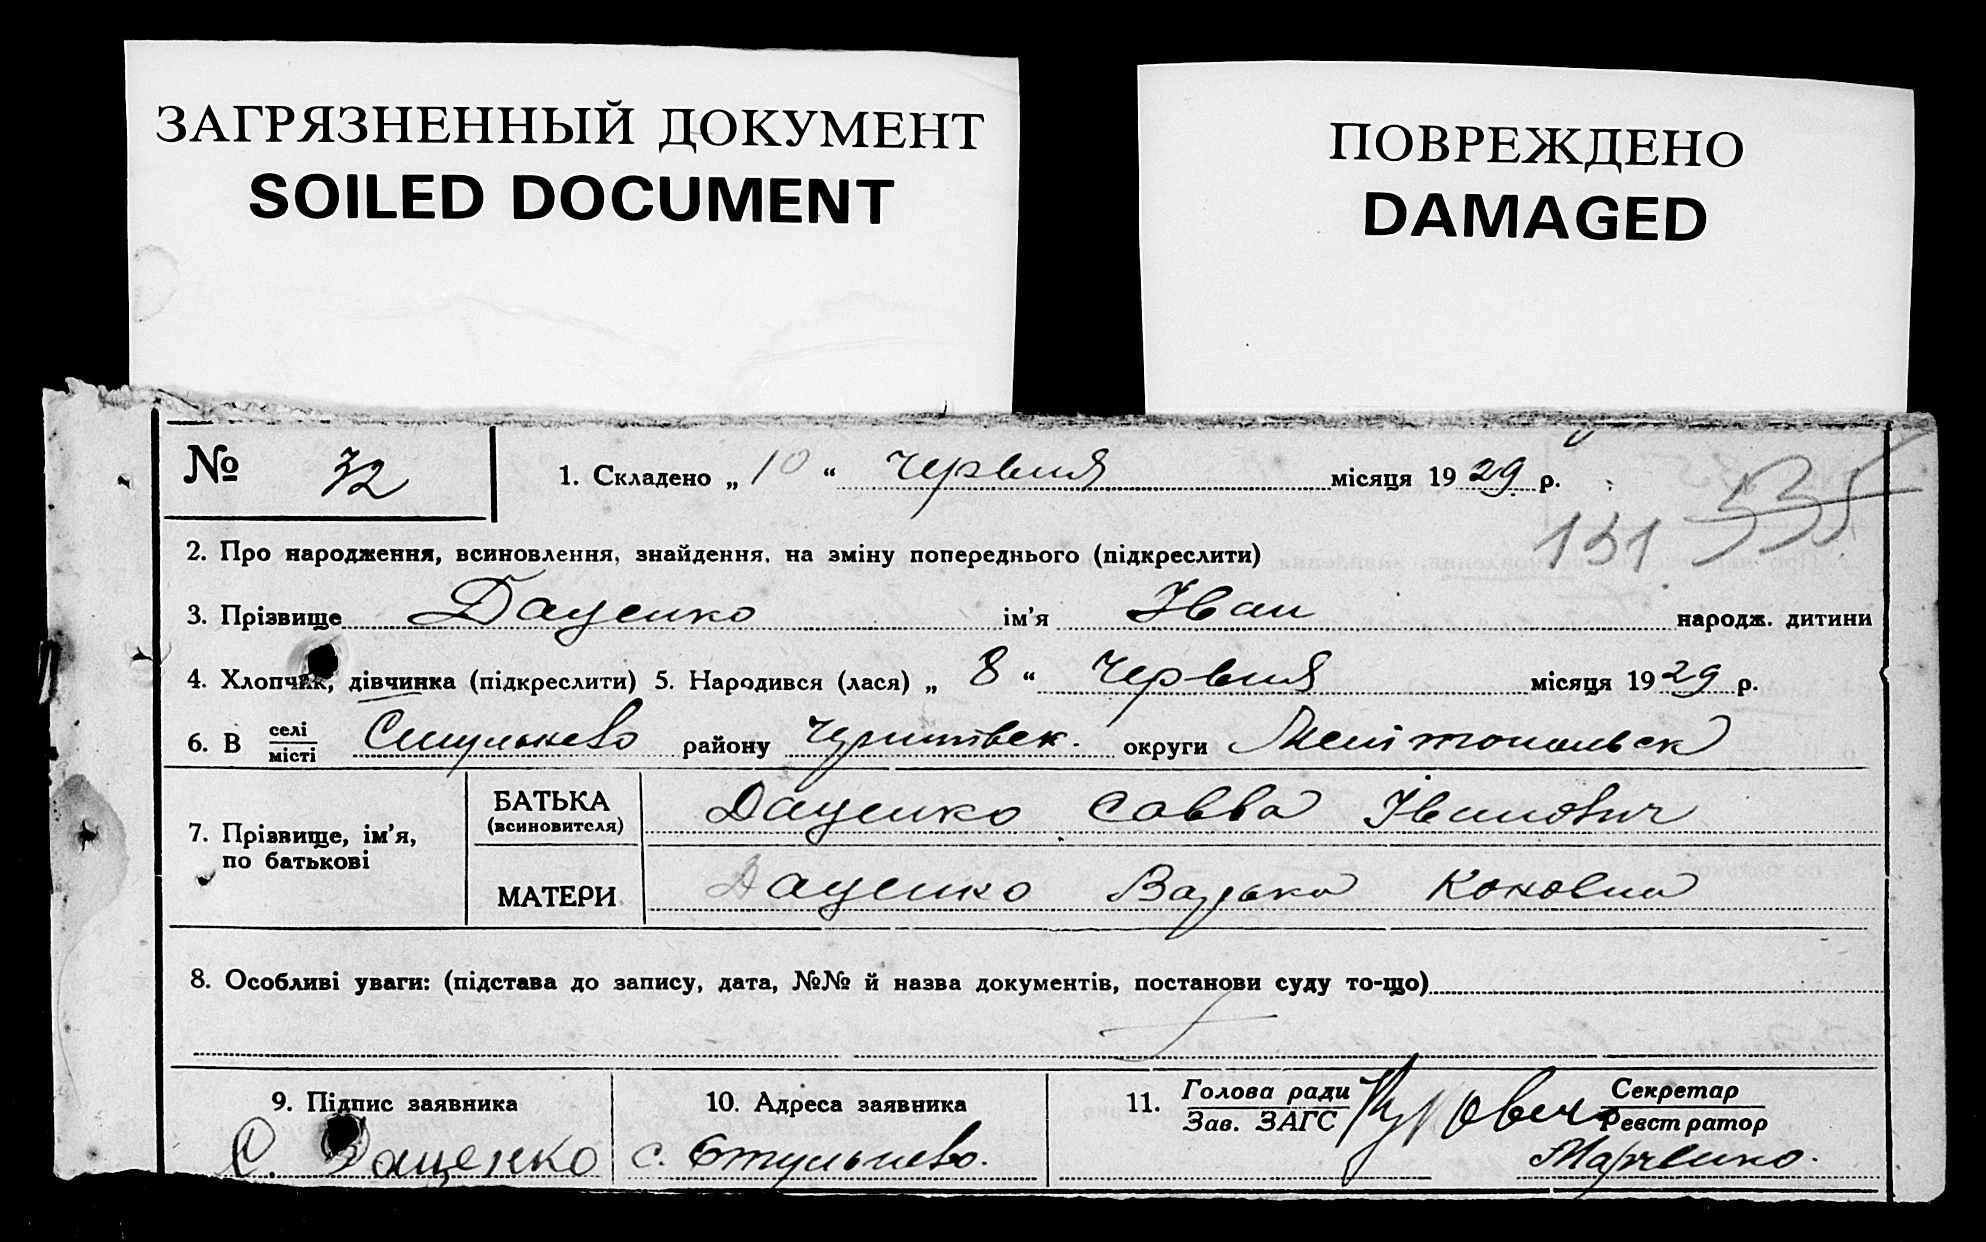 ЗАГРЯЗНЕННЫЙ ДОКУМЕНТ
SOILED DOCUMENT
ПОВРЕЖДЕНО
DAMAGED
№ 72
1. Складено „ 10 “ червня місяця 1929 р.
131 535
2. Про народження, всиновлення, знайдення, на зміну попереднього (підкреслити)
3. Прізвище Даценко ім'я Іван народж. дитини
4. Хлопчик, дівчинка (підкреслити) 5. Народився (лася) „ 8 “ Червня місяця 1929 р.
6. В селі місті Стульнево району округи Мелітопольск
7. Прізвище, ім'я, по батькові
БАТЬКА (всиновителя) Даценко Савва Іванович
МАТЕРИ Даценко
8. Особливі уваги: (підстава до запису, дата, №№ й назва документів, постанови суду то-що)
9. Підпис заявника
С. Даценко
10. Адреса заявника
с. Стульнево.
11. Голова ради
Зав. ЗАГС
Секретар
Реестратор
Марченко.